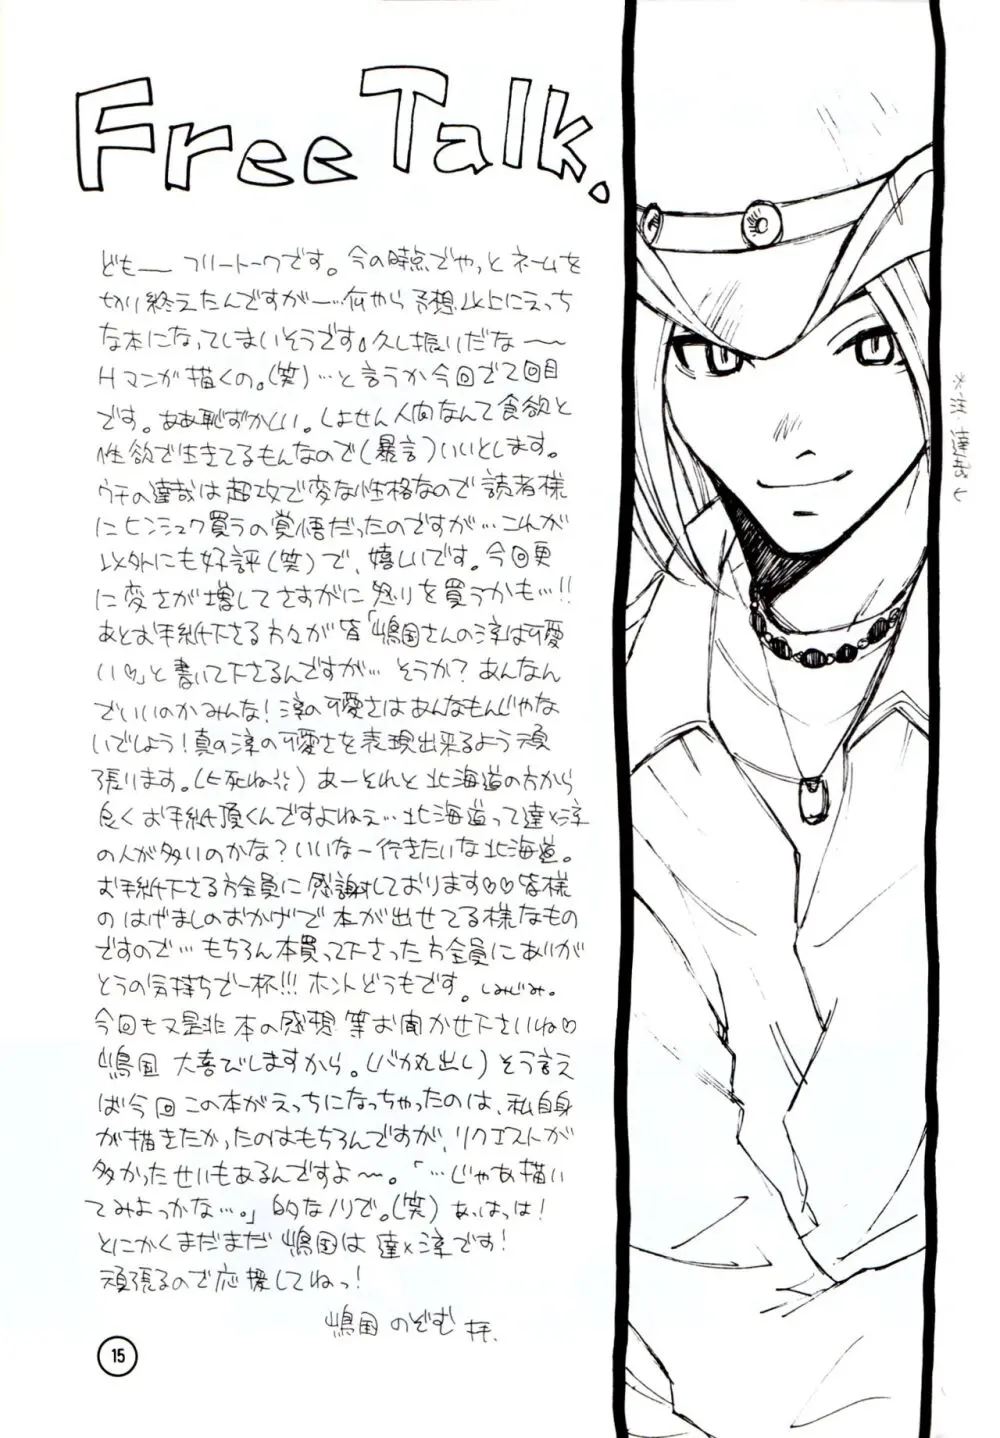 Free Talk.
ども—— フリートークです。今の時点でやっとネームを
切り終えたんですが—…何やら予想以上にえっち
な本になってしまいそうです。久し振りだな——
Hマンガ描くの。(笑)…と言うか今回で2回目
です。ああ恥ずかしい。しょせん人間なんて食欲と
性欲で生きてるもんなので(暴言)いいとします。
ウチの達哉は超攻で変な性格なので読者様
にヒンシュク買うの覚悟だったのですが…これが
以外にも好評(笑)で、嬉しいです。今回更
に変さが増してさすがに怒りを買うかも…!!
あとお手紙下さる方々が皆「嶋国さんの淳は可愛
い♡」と書いて下さるんですが… そうか?あんなん
でいいのかみんな!淳の可愛さはあんなもんじゃな
いでしょう!真の淳の可愛さを表現出来るよう頑
張ります。(と死ね) あーそれと北海道の方から
良くお手紙頂くんですよねぇ…北海道って達×淳
の人が多いのかな?いいな〜行きたいな北海道。
お手紙下さる方全員に感謝しております♡♡皆様
のはげましのおかげで本が出せてる様なもの
ですので…もちろん本買って下さった方全員にありが
とうの気持ちで一杯!!!ホントどうもです。しみじみ。
今回も又是非本の感想等お聞かせ下さいね♡
嶋国 大喜びしますから。(バカ丸出し)そう言え
ば今回この本がえっちになっちゃったのは、私自身
が描きたかったのはもちろんですが、リクエストが
多かったせいもあるんですよ〜。「…じゃあ描い
てみよっかな…。」的なノリで。(笑)あっはっは!
とにかくまだまだ嶋国は達×淳です!
頑張るので応援してねっ!
嶋国 のぞむ 拝.
15
※注・達哉